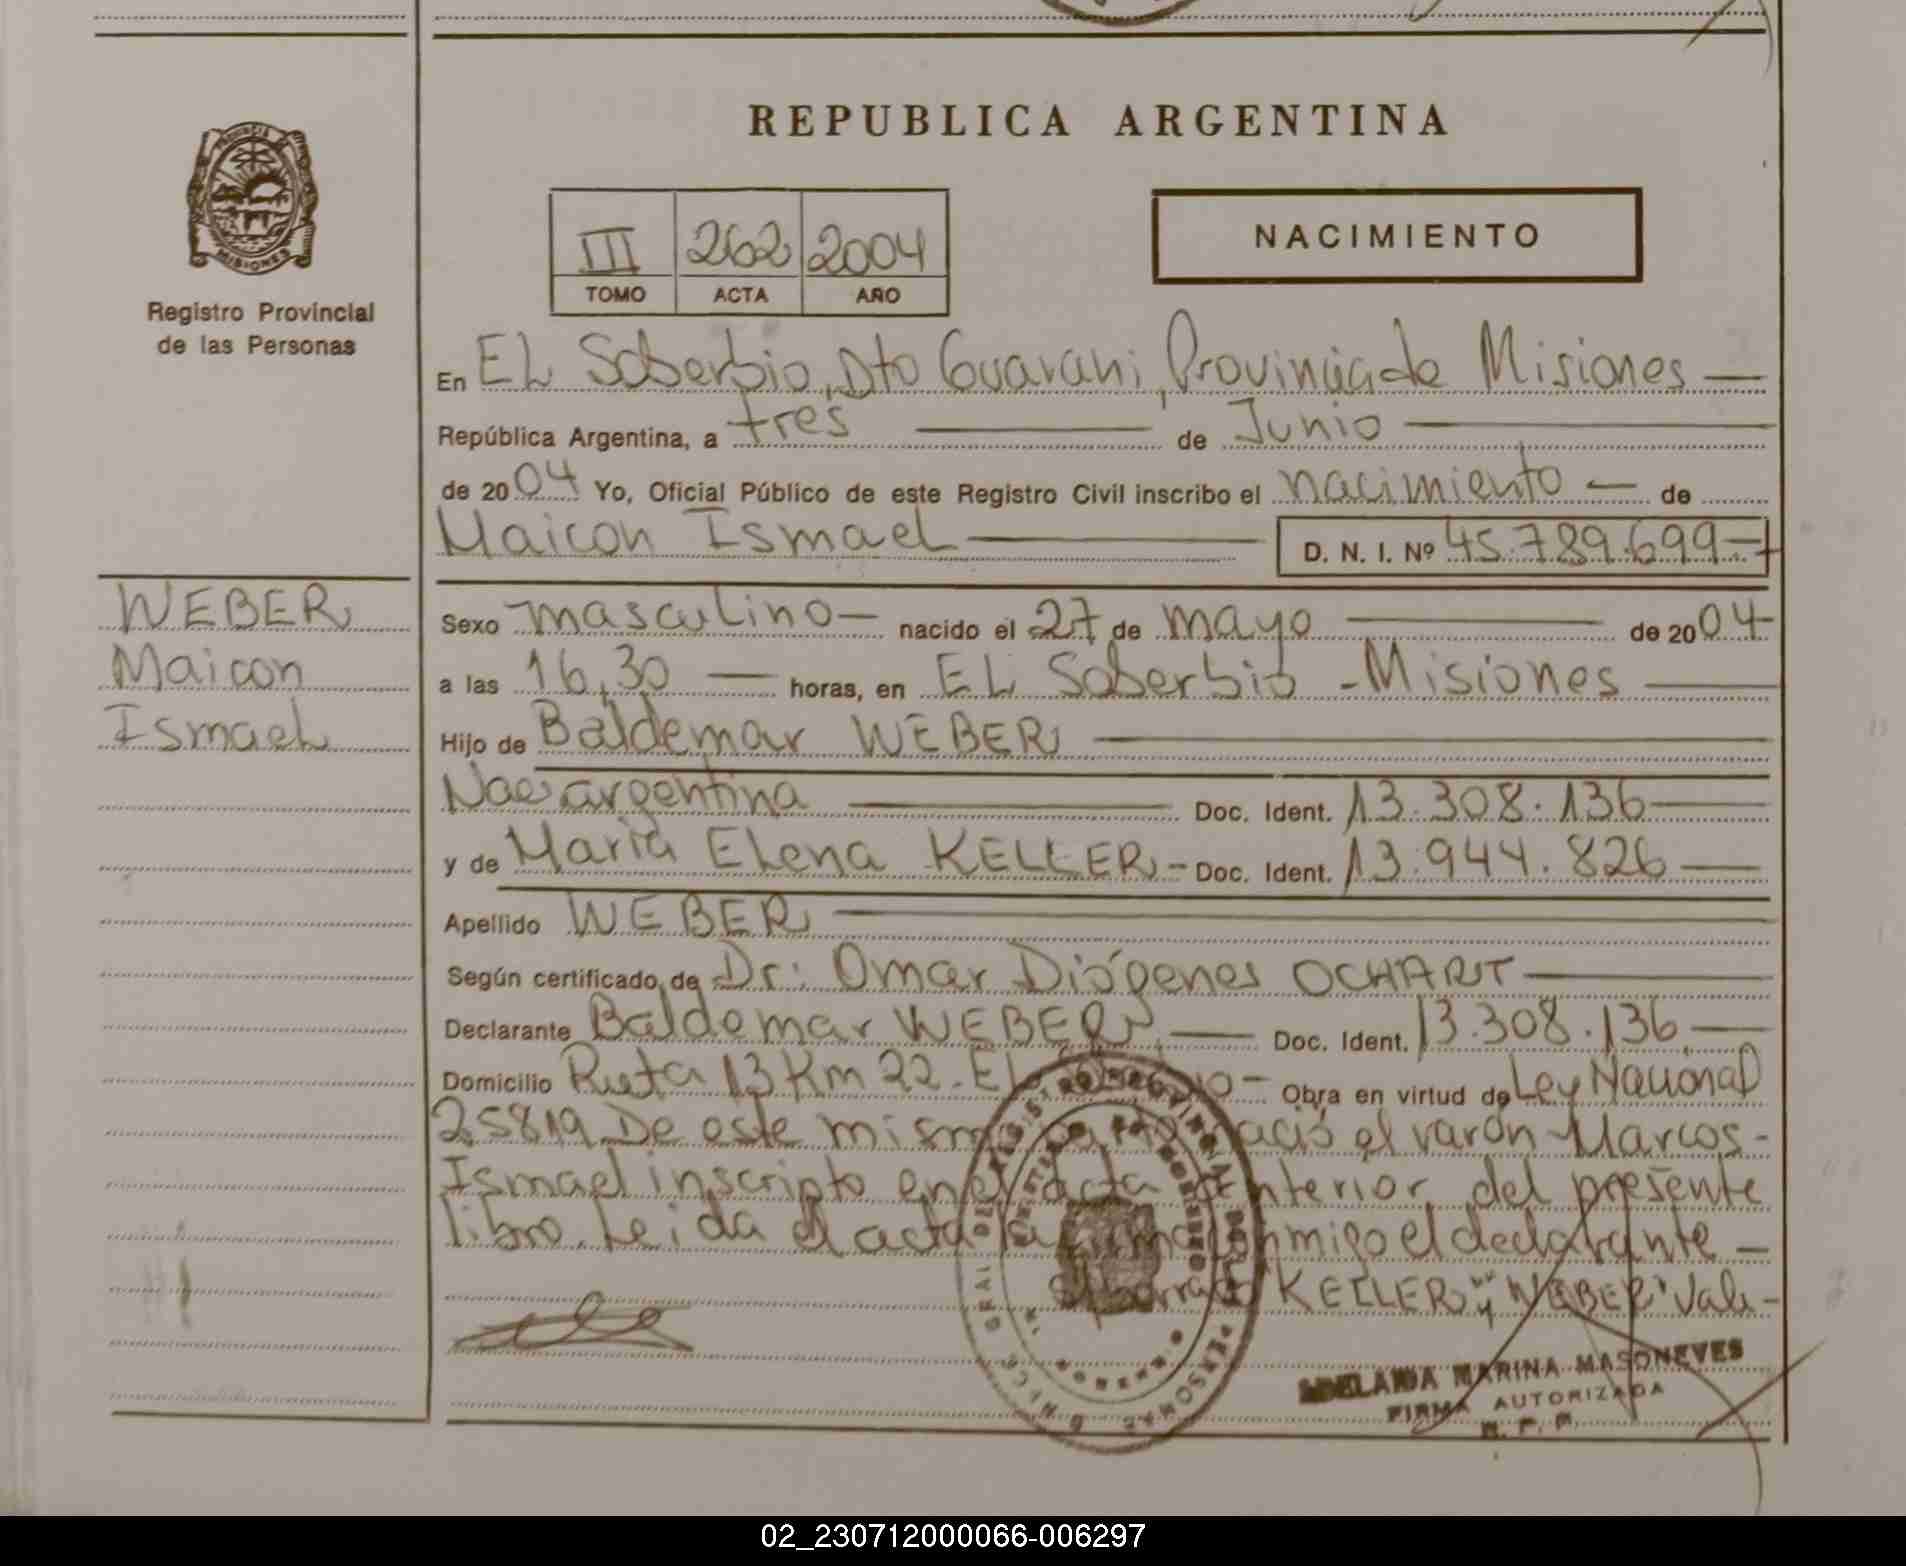 REPUBLICA ARGENTINA
PROVINCIA DE MISIONES
Registro Provincial
de las Personas
III 262 2004
TOMO ACTA AÑO
NACIMIENTO
En EL Soberbio, Dto Guarani, Provincia de Misiones
República Argentina, a tres de Junio
de 2004 Yo, Oficial Público de este Registro Civil inscribo el nacimiento de
Maicon Ismael D. N. I. Nº 45.789.699
WEBER
Maicon
Ismael
Sexo masculino nacido el 27 de mayo de 2004
a las 16,30 horas, en EL Soberbio - Misiones
Hijo de Baldemar WEBER
Nac argentina Doc. Ident. 13.308.136
y de Maria Elena KELLER Doc. Ident. 13.944.826
Apellido WEBER
Según certificado de Dr. Omar Diógenes OCHART
Declarante Baldemar WEBER Doc. Ident. 13.308.136
Domicilio Ruta 13 Km 22 - EL Obra en virtud de Ley Nacional
25819 De este mismo nació el varón Marcos
Ismael inscripto en el acta anterior del presente
libro. Leida el acta la firma conmigo el declarante
KELLER y WEBER Vale
ADELAIDA MARINA MASONEVES
FIRMA AUTORIZADA
R. P. P.
02_230712000066-006297